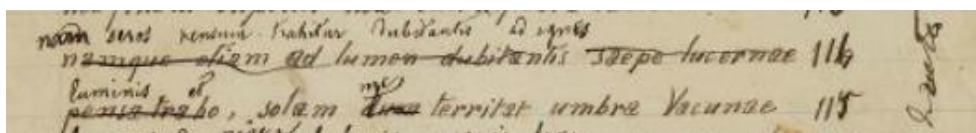 nam seros pensum trahitur dubitantis ad ignes
namque etiam ad lumen dubitantis saepe lucernae 114
luminis et me
pensa traho, solam dum territat umbra Vacunae 115